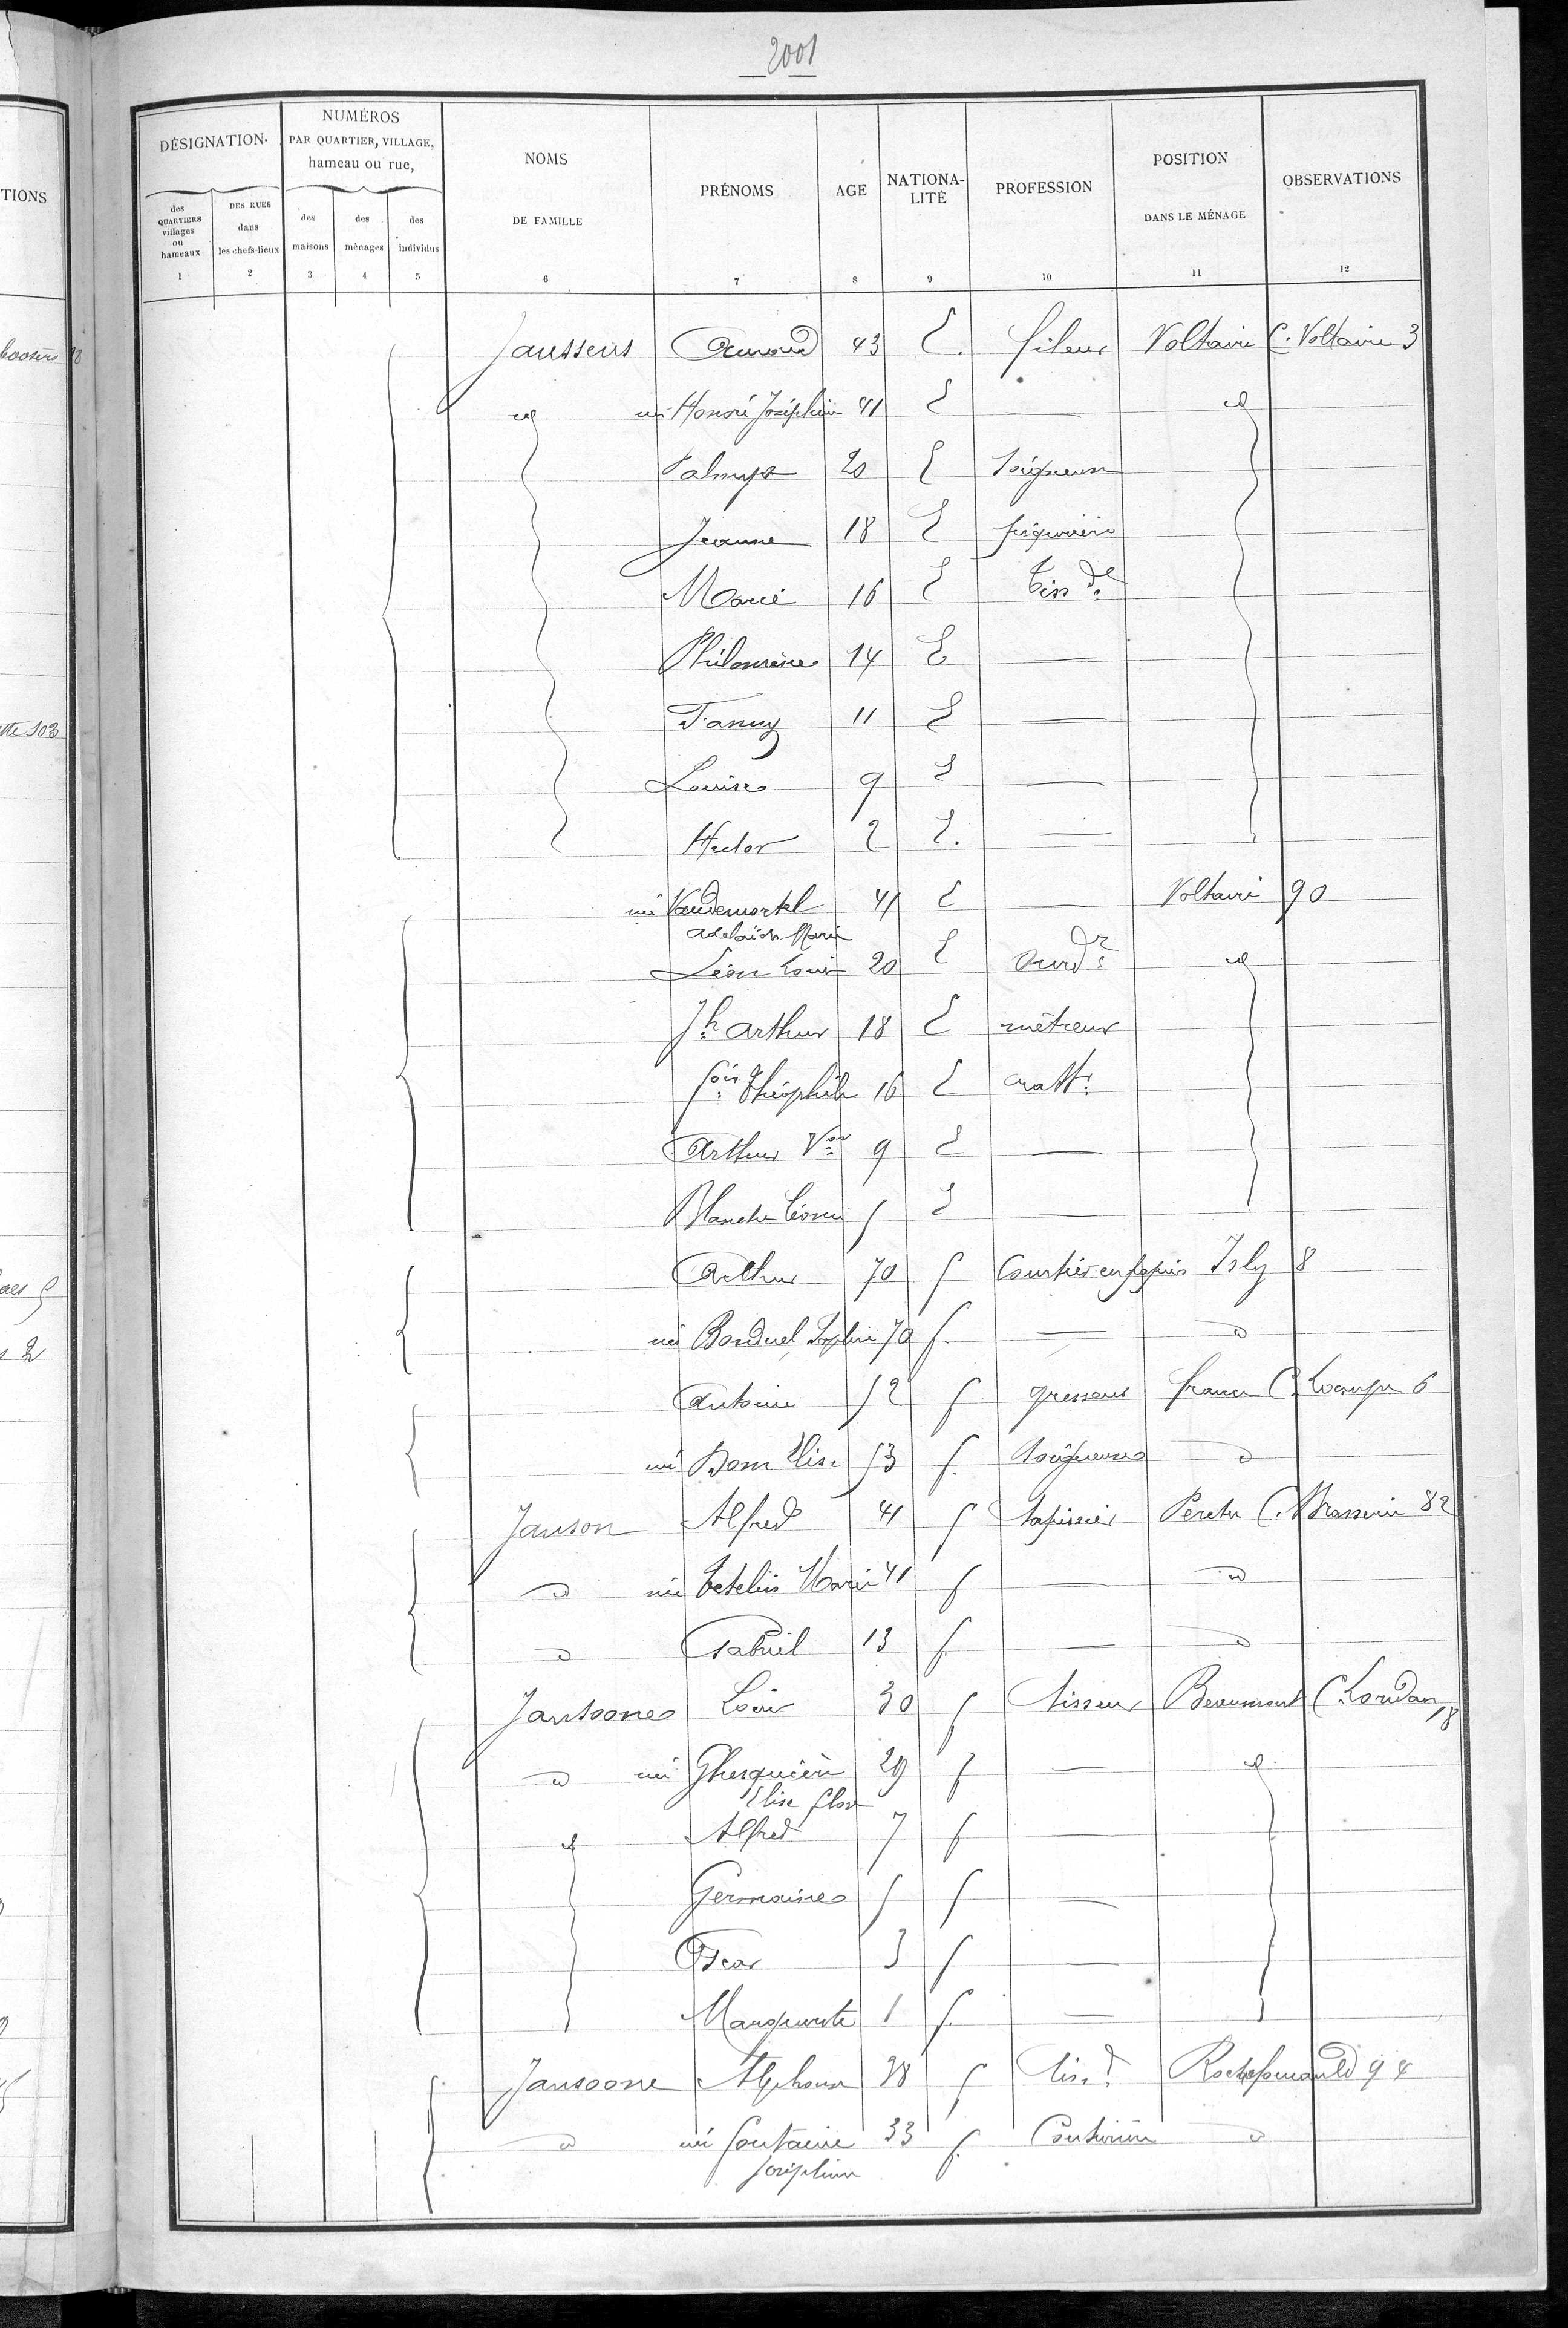 2001
DÉSIGNATION
NUMÉROS
PAR QUARTIER, VILLAGE,
hameau ou rue,
des QUARTIERS villages ou hameaux
DES RUES dans les chefs-lieux
des maisons
des ménages
des individus
NOMS DE FAMILLE
PRÉNOMS
AGE
NATIONA-LITÉ
PROFESSION
POSITION DANS LE MÉNAGE
OBSERVATIONS
1 2 3 4 5 6 7 8 9 10 11 12
Janssens 43 E. fileur Voltaire C. Voltaire 3
id née Honoré Joséphine 41 E — id
Palmyre 20 E soigneuse
Jeanne 18 E piqurière
Marie 16 E Tiss de
Philomène 14 E —
Fanny 11 E —
Louise 9 E —
Hector 2 E. —
née Vandemortel 41 E — Voltaire 90
Adelaïde Marie
Léon Louis 20 E ourdr id
Jh Arthur 18 E métreur
fois Théophile 16 E ratt:
Arthur Vor 9 E —
Blanche Léonie 5 E —
Arthur 70 f Courtier en papier Isly 8
née Bonduel Sophie 70 f. — d
Antoine 52 f presseur france C. 6
née Bom Elise 53 f. soigneuse d
Janson Alfred 41 f tapissier Perche C. Brasserie 82
d née Tetelin Marie 41 f — d
d Gabriel 13 f. — d
Jansoone Louis 30 f tisseur Beaumont C. Loridan 18
d née Ghesquière 29 f — id
Elise flore
id Alfred 7 f —
Germaine 5 f —
Oscar 3 f —
Marguerite 1 f. —
Jansoone Alphonse 38 f tis. d Rochefoucauld 94
d née fontaine 33 f. Couturière d
Joséphine
TIONS
tte 103